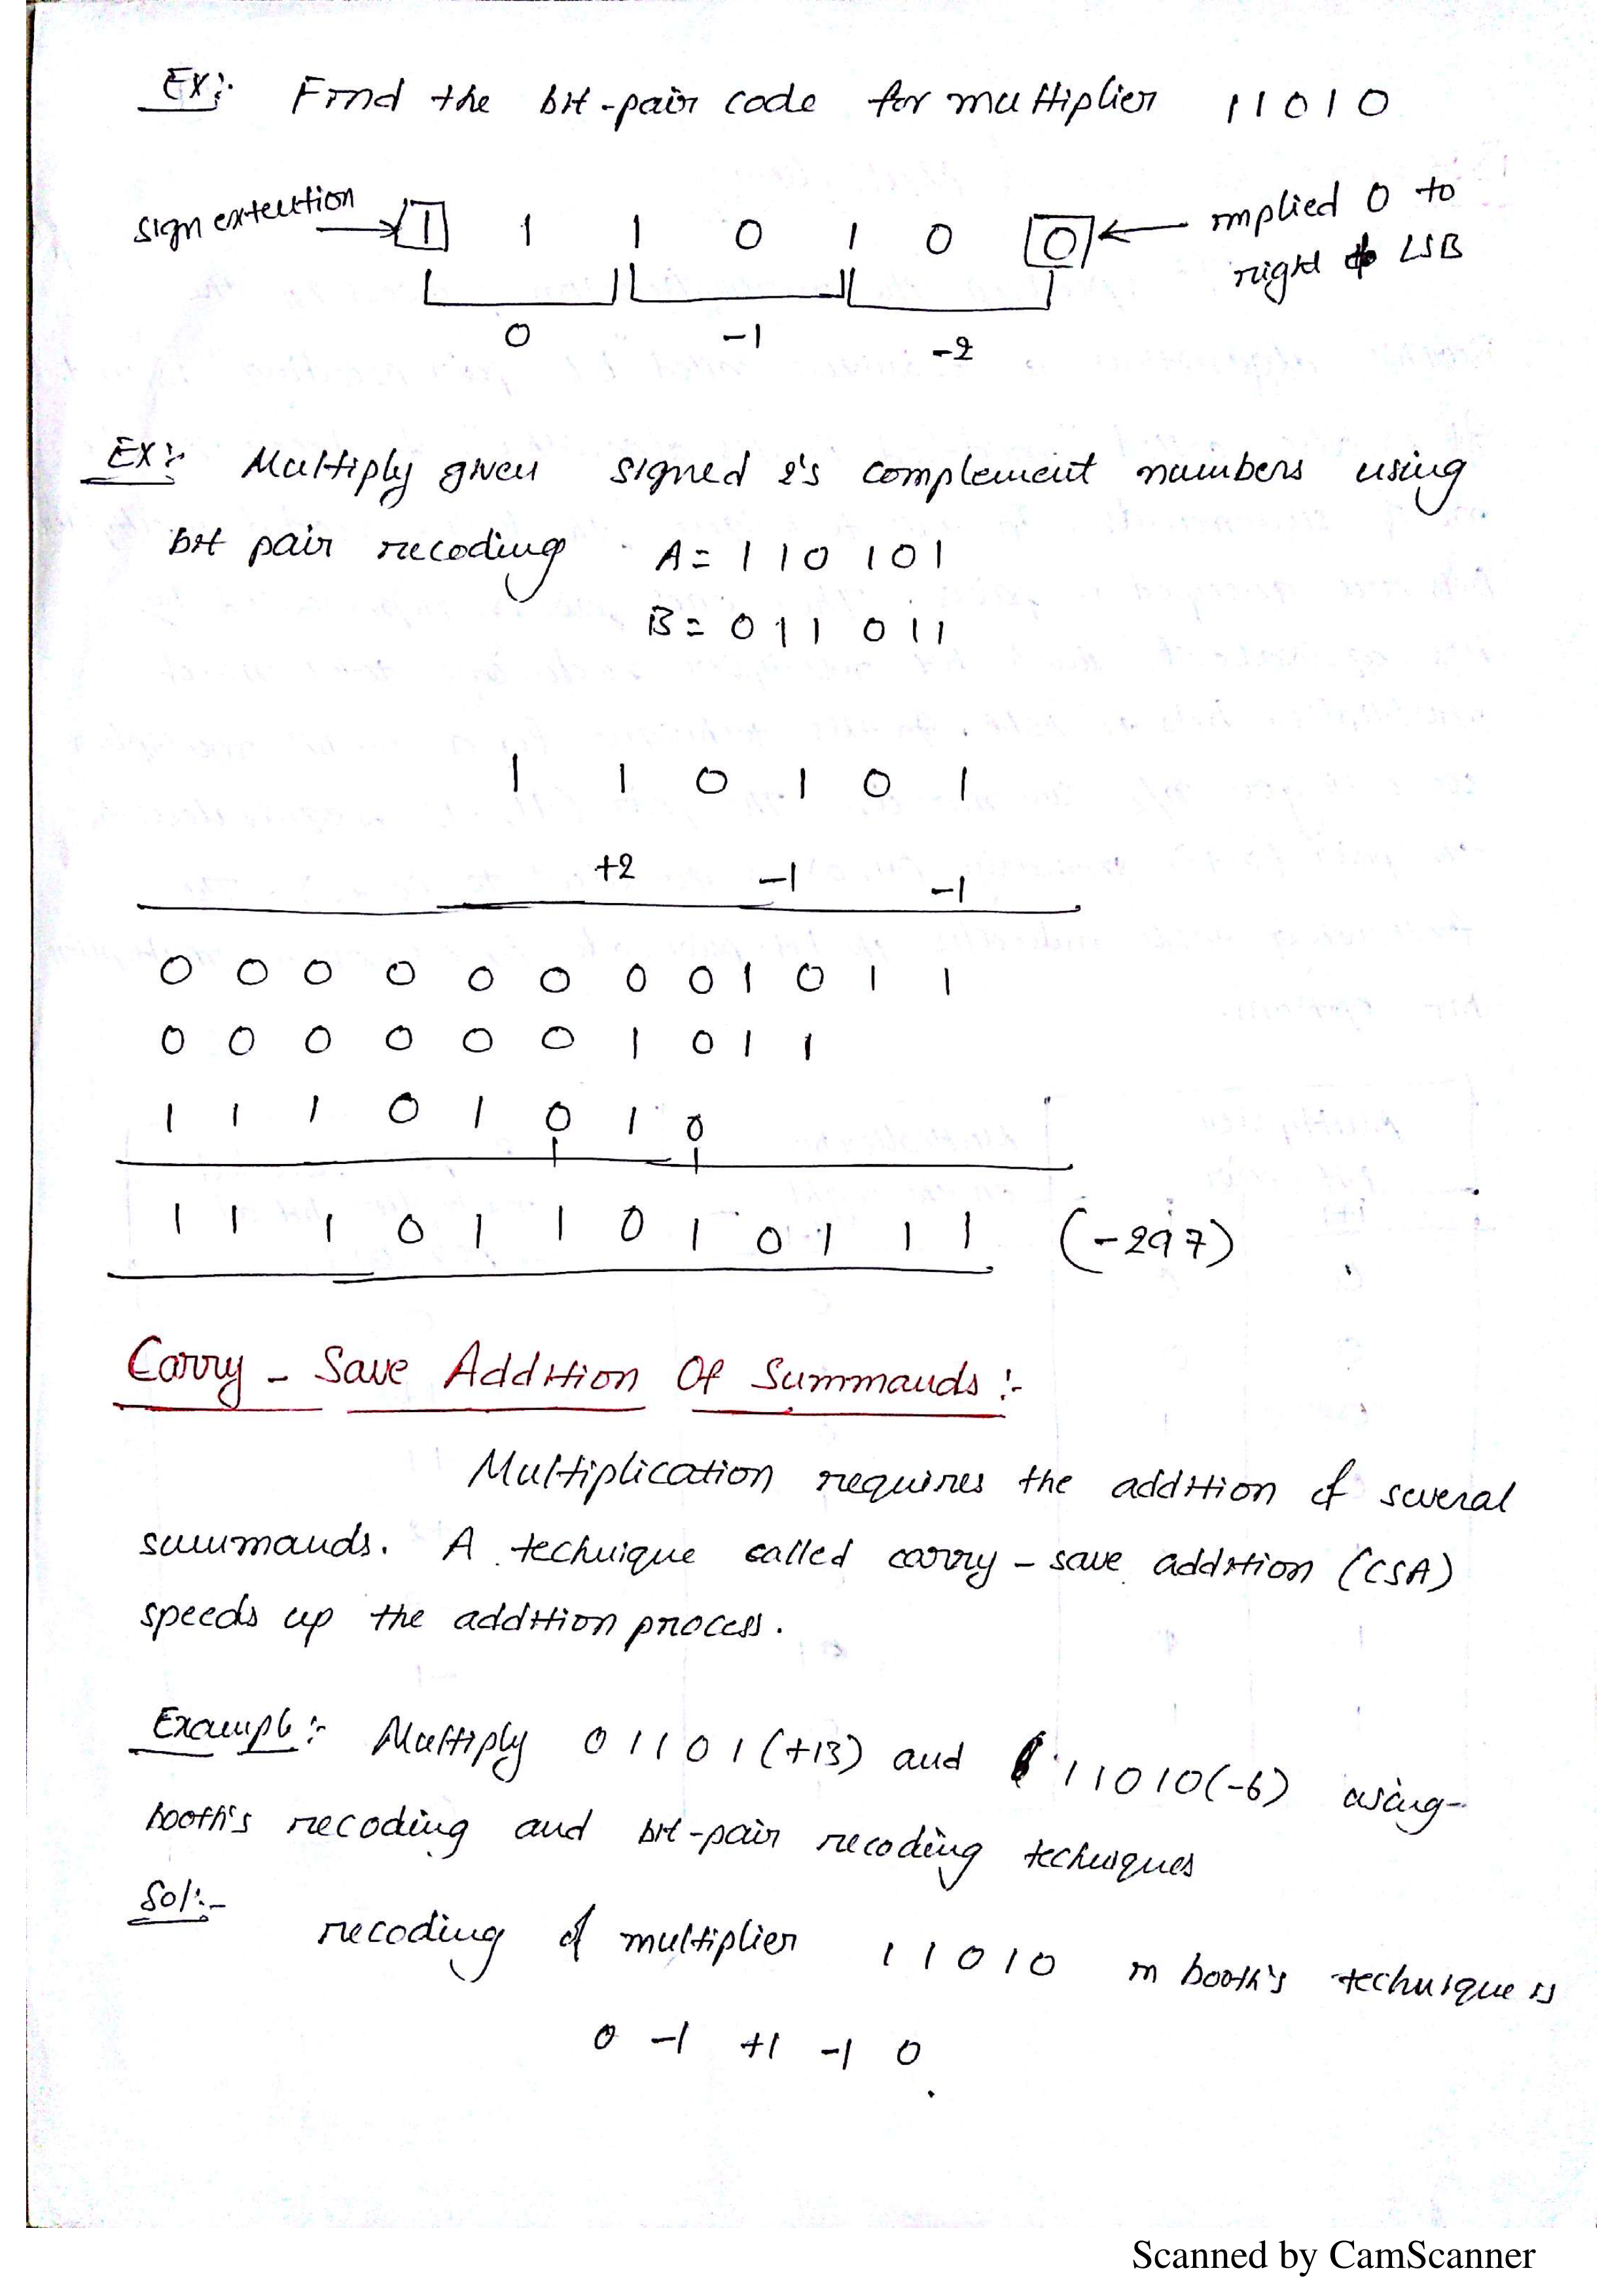 Ex:- Find the bit-pair code for multiplier 11010
sign extention → 1 1 1 0 1 0 0 ← implied 0 to
right to LSB
0 -1 -2
Ex:- Multiply given signed 2's complement numbers using
bit pair recoding A = 110 101
B = 011 011
1 1 0 1 0 1
+2 -1 -1
0 0 0 0 0 0 0 0 1 0 1 1
0 0 0 0 0 0 1 0 1 1
1 1 1 0 1 0 1 0
1 1 1 0 1 1 0 1 0 1 1 1 (-297)
Carry - Save Addition Of Summands :-
Multiplication requires the addition of several
summands. A technique called carry - save addition (CSA)
speeds up the addition process.
Example:- Multiply 01101(+13) and 11010(-6) using-
booth's recoding and bit-pair recoding techniques
Sol:- recoding of multiplier 11010 in booth's technique is
0 -1 +1 -1 0.
Scanned by CamScanner